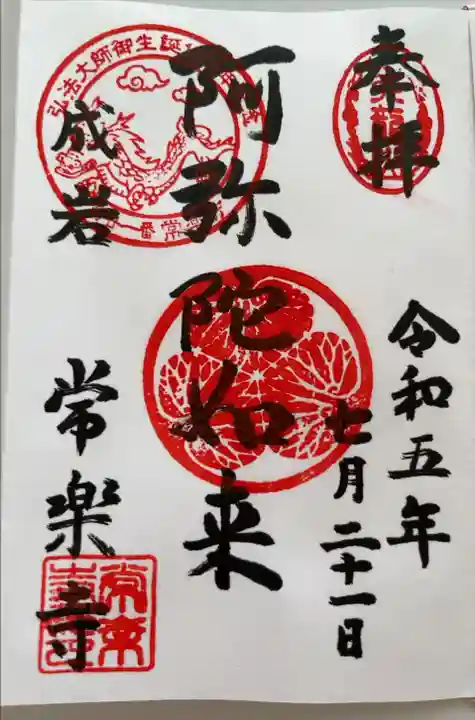 奉拝
令和五年
七月二十一日
阿弥陀如来
成岩
常楽寺
弘法大師御生誕
番常